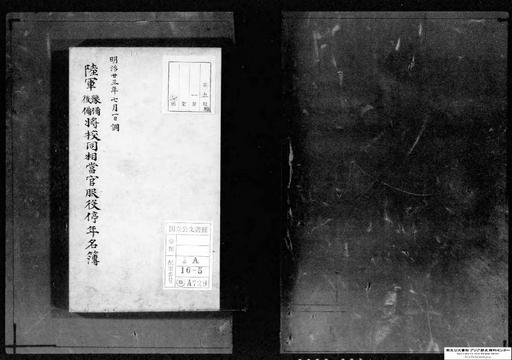 明治廿三年七月一日調
陸軍豫備後備将校同相當官服役停年名簿
国立公文書館
分類
配架番号
2 A
16-5
A729
国立公文書館 アジア歴史資料センター